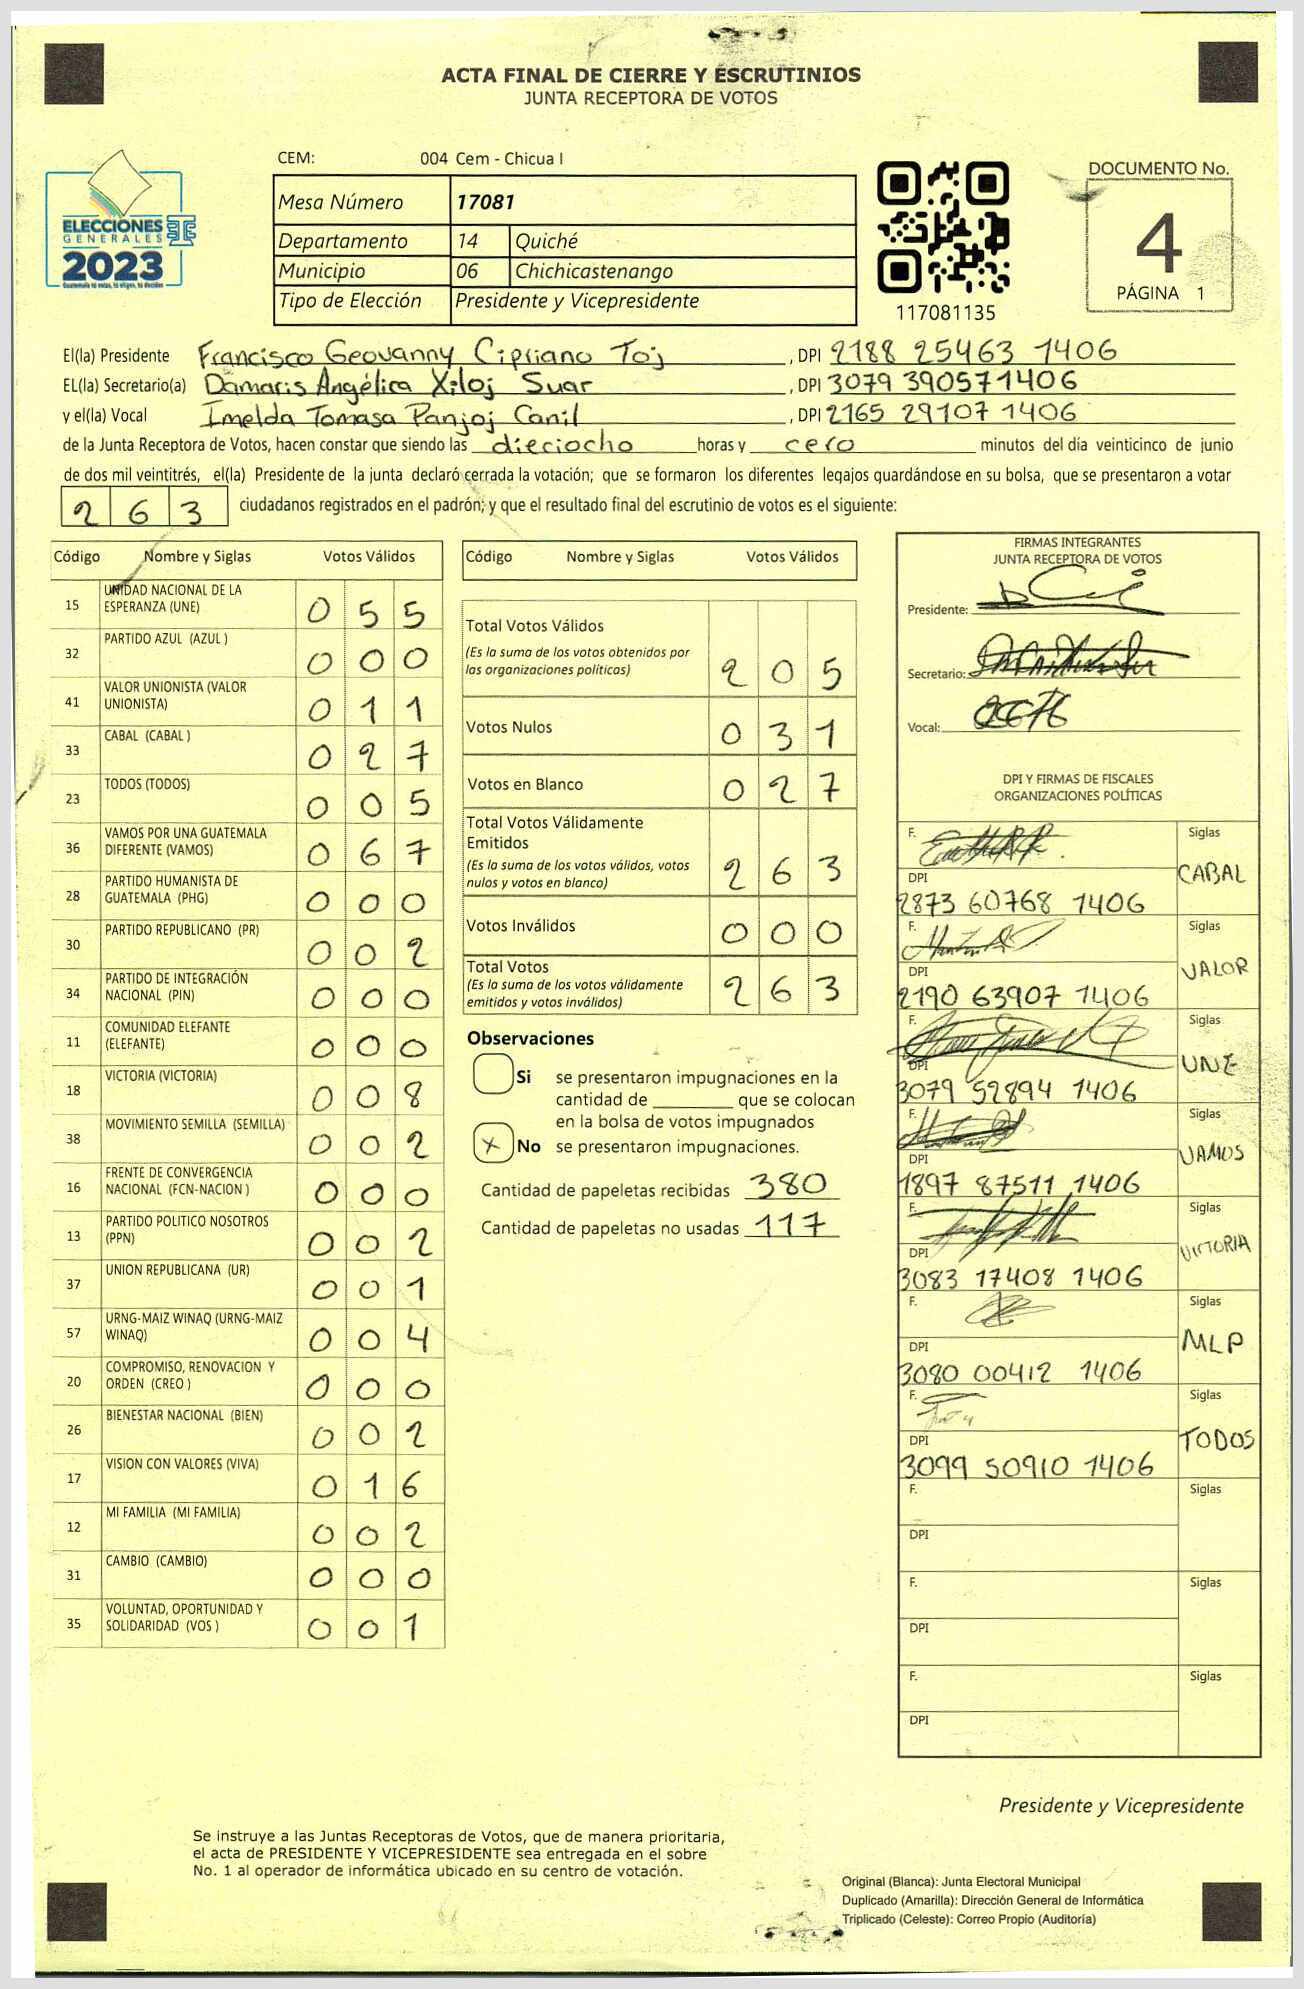 ACTA FINAL DE CIERRE Y ESCRUTINIOS
JUNTA RECEPTORA DE VOTOS
ELECCIONES
GENERALES
2023
Guatemala tú votas, tú eliges, tú decides
CEM: 004 Cem - Chicua I
Mesa Número 17081
Departamento 14 Quiché
Municipio 06 Chichicastenango
Tipo de Elección Presidente y Vicepresidente
117081135
DOCUMENTO No.
4
PÁGINA 1
El(la) Presidente Francisco Geovanny Cipriano Toj , DPI 2188 25463 1406
EL(la) Secretario(a) Damaris Angélica Xiloj Suar , DPI 3079 39057 1406
y el(la) Vocal Imelda Tomasa Panjoj Canil , DPI 2165 29107 1406
de la Junta Receptora de Votos, hacen constar que siendo las dieciocho horas y cero minutos del día veinticinco de junio
de dos mil veintitrés, el(la) Presidente de la junta declaró cerrada la votación; que se formaron los diferentes legajos guardándose en su bolsa, que se presentaron a votar
263 ciudadanos registrados en el padrón; y que el resultado final del escrutinio de votos es el siguiente:
Código Nombre y Siglas Votos Válidos
15 UNIDAD NACIONAL DE LA
ESPERANZA (UNE) 055
32 PARTIDO AZUL (AZUL ) 000
41 VALOR UNIONISTA (VALOR
UNIONISTA) 011
33 CABAL (CABAL ) 027
23 TODOS (TODOS) 005
36 VAMOS POR UNA GUATEMALA
DIFERENTE (VAMOS) 067
28 PARTIDO HUMANISTA DE
GUATEMALA (PHG) 000
30 PARTIDO REPUBLICANO (PR) 002
34 PARTIDO DE INTEGRACIÓN
NACIONAL (PIN) 000
11 COMUNIDAD ELEFANTE
(ELEFANTE) 000
18 VICTORIA (VICTORIA) 008
38 MOVIMIENTO SEMILLA (SEMILLA) 002
16 FRENTE DE CONVERGENCIA
NACIONAL (FCN-NACION ) 000
13 PARTIDO POLITICO NOSOTROS
(PPN) 002
37 UNION REPUBLICANA (UR) 001
57 URNG-MAIZ WINAQ (URNG-MAIZ
WINAQ) 004
20 COMPROMISO, RENOVACION Y
ORDEN (CREO ) 000
26 BIENESTAR NACIONAL (BIEN) 002
17 VISION CON VALORES (VIVA) 016
12 MI FAMILIA (MI FAMILIA) 002
31 CAMBIO (CAMBIO) 000
35 VOLUNTAD, OPORTUNIDAD Y
SOLIDARIDAD (VOS ) 001
Código Nombre y Siglas Votos Válidos
Total Votos Válidos
(Es la suma de los votos obtenidos por
las organizaciones políticas) 205
Votos Nulos 031
Votos en Blanco 027
Total Votos Válidamente
Emitidos
(Es la suma de los votos válidos, votos
nulos y votos en blanco) 263
Votos Inválidos 000
Total Votos
(Es la suma de los votos válidamente
emitidos y votos inválidos) 263
Observaciones
Si se presentaron impugnaciones en la
cantidad de ________ que se colocan
en la bolsa de votos impugnados
x No se presentaron impugnaciones.
Cantidad de papeletas recibidas 380
Cantidad de papeletas no usadas 117
FIRMAS INTEGRANTES
JUNTA RECEPTORA DE VOTOS
Presidente:
Secretario:
Vocal:
DPI Y FIRMAS DE FISCALES
ORGANIZACIONES POLÍTICAS
F. Siglas
CABAL
DPI
2873 60768 1406
F. Siglas
VALOR
DPI
2190 63907 1406
F. Siglas
UNE
DPI
3079 52894 1406
F. Siglas
VAMOS
DPI
1897 87511 1406
F. Siglas
VICTORIA
DPI
3083 17408 1406
F. Siglas
MLP
DPI
3080 00412 1406
F. Siglas
TODOS
DPI
3099 50910 1406
F. Siglas
DPI
F. Siglas
DPI
F. Siglas
DPI
Presidente y Vicepresidente
Se instruye a las Juntas Receptoras de Votos, que de manera prioritaria,
el acta de PRESIDENTE Y VICEPRESIDENTE sea entregada en el sobre
No. 1 al operador de informática ubicado en su centro de votación.
Original (Blanca): Junta Electoral Municipal
Duplicado (Amarilla): Dirección General de Informática
Triplicado (Celeste): Correo Propio (Auditoría)